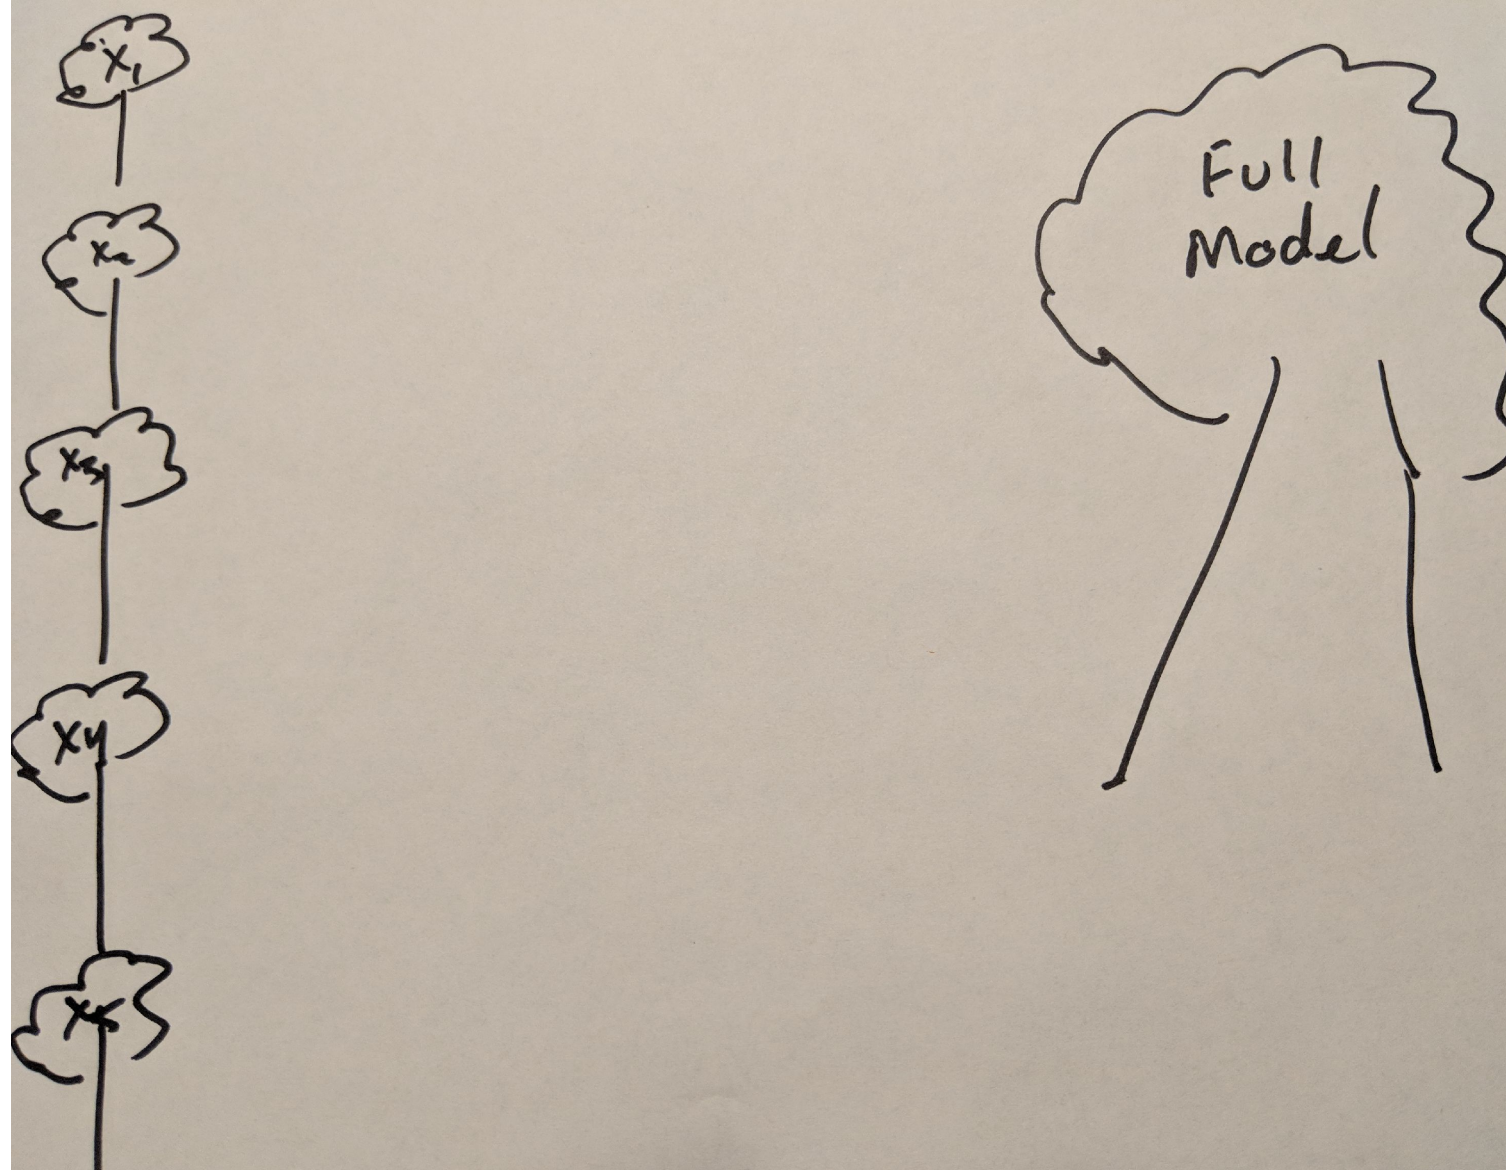 X1
X2
X3
X4
X5
Full
Model